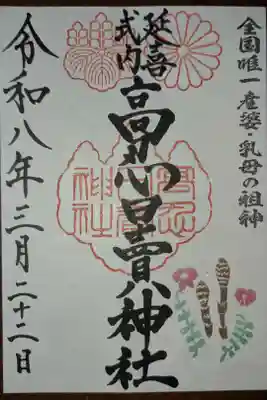 全国唯一産婆・乳母の祖神
延喜
式内
高忍日賣神社
令和八年三月二十二日